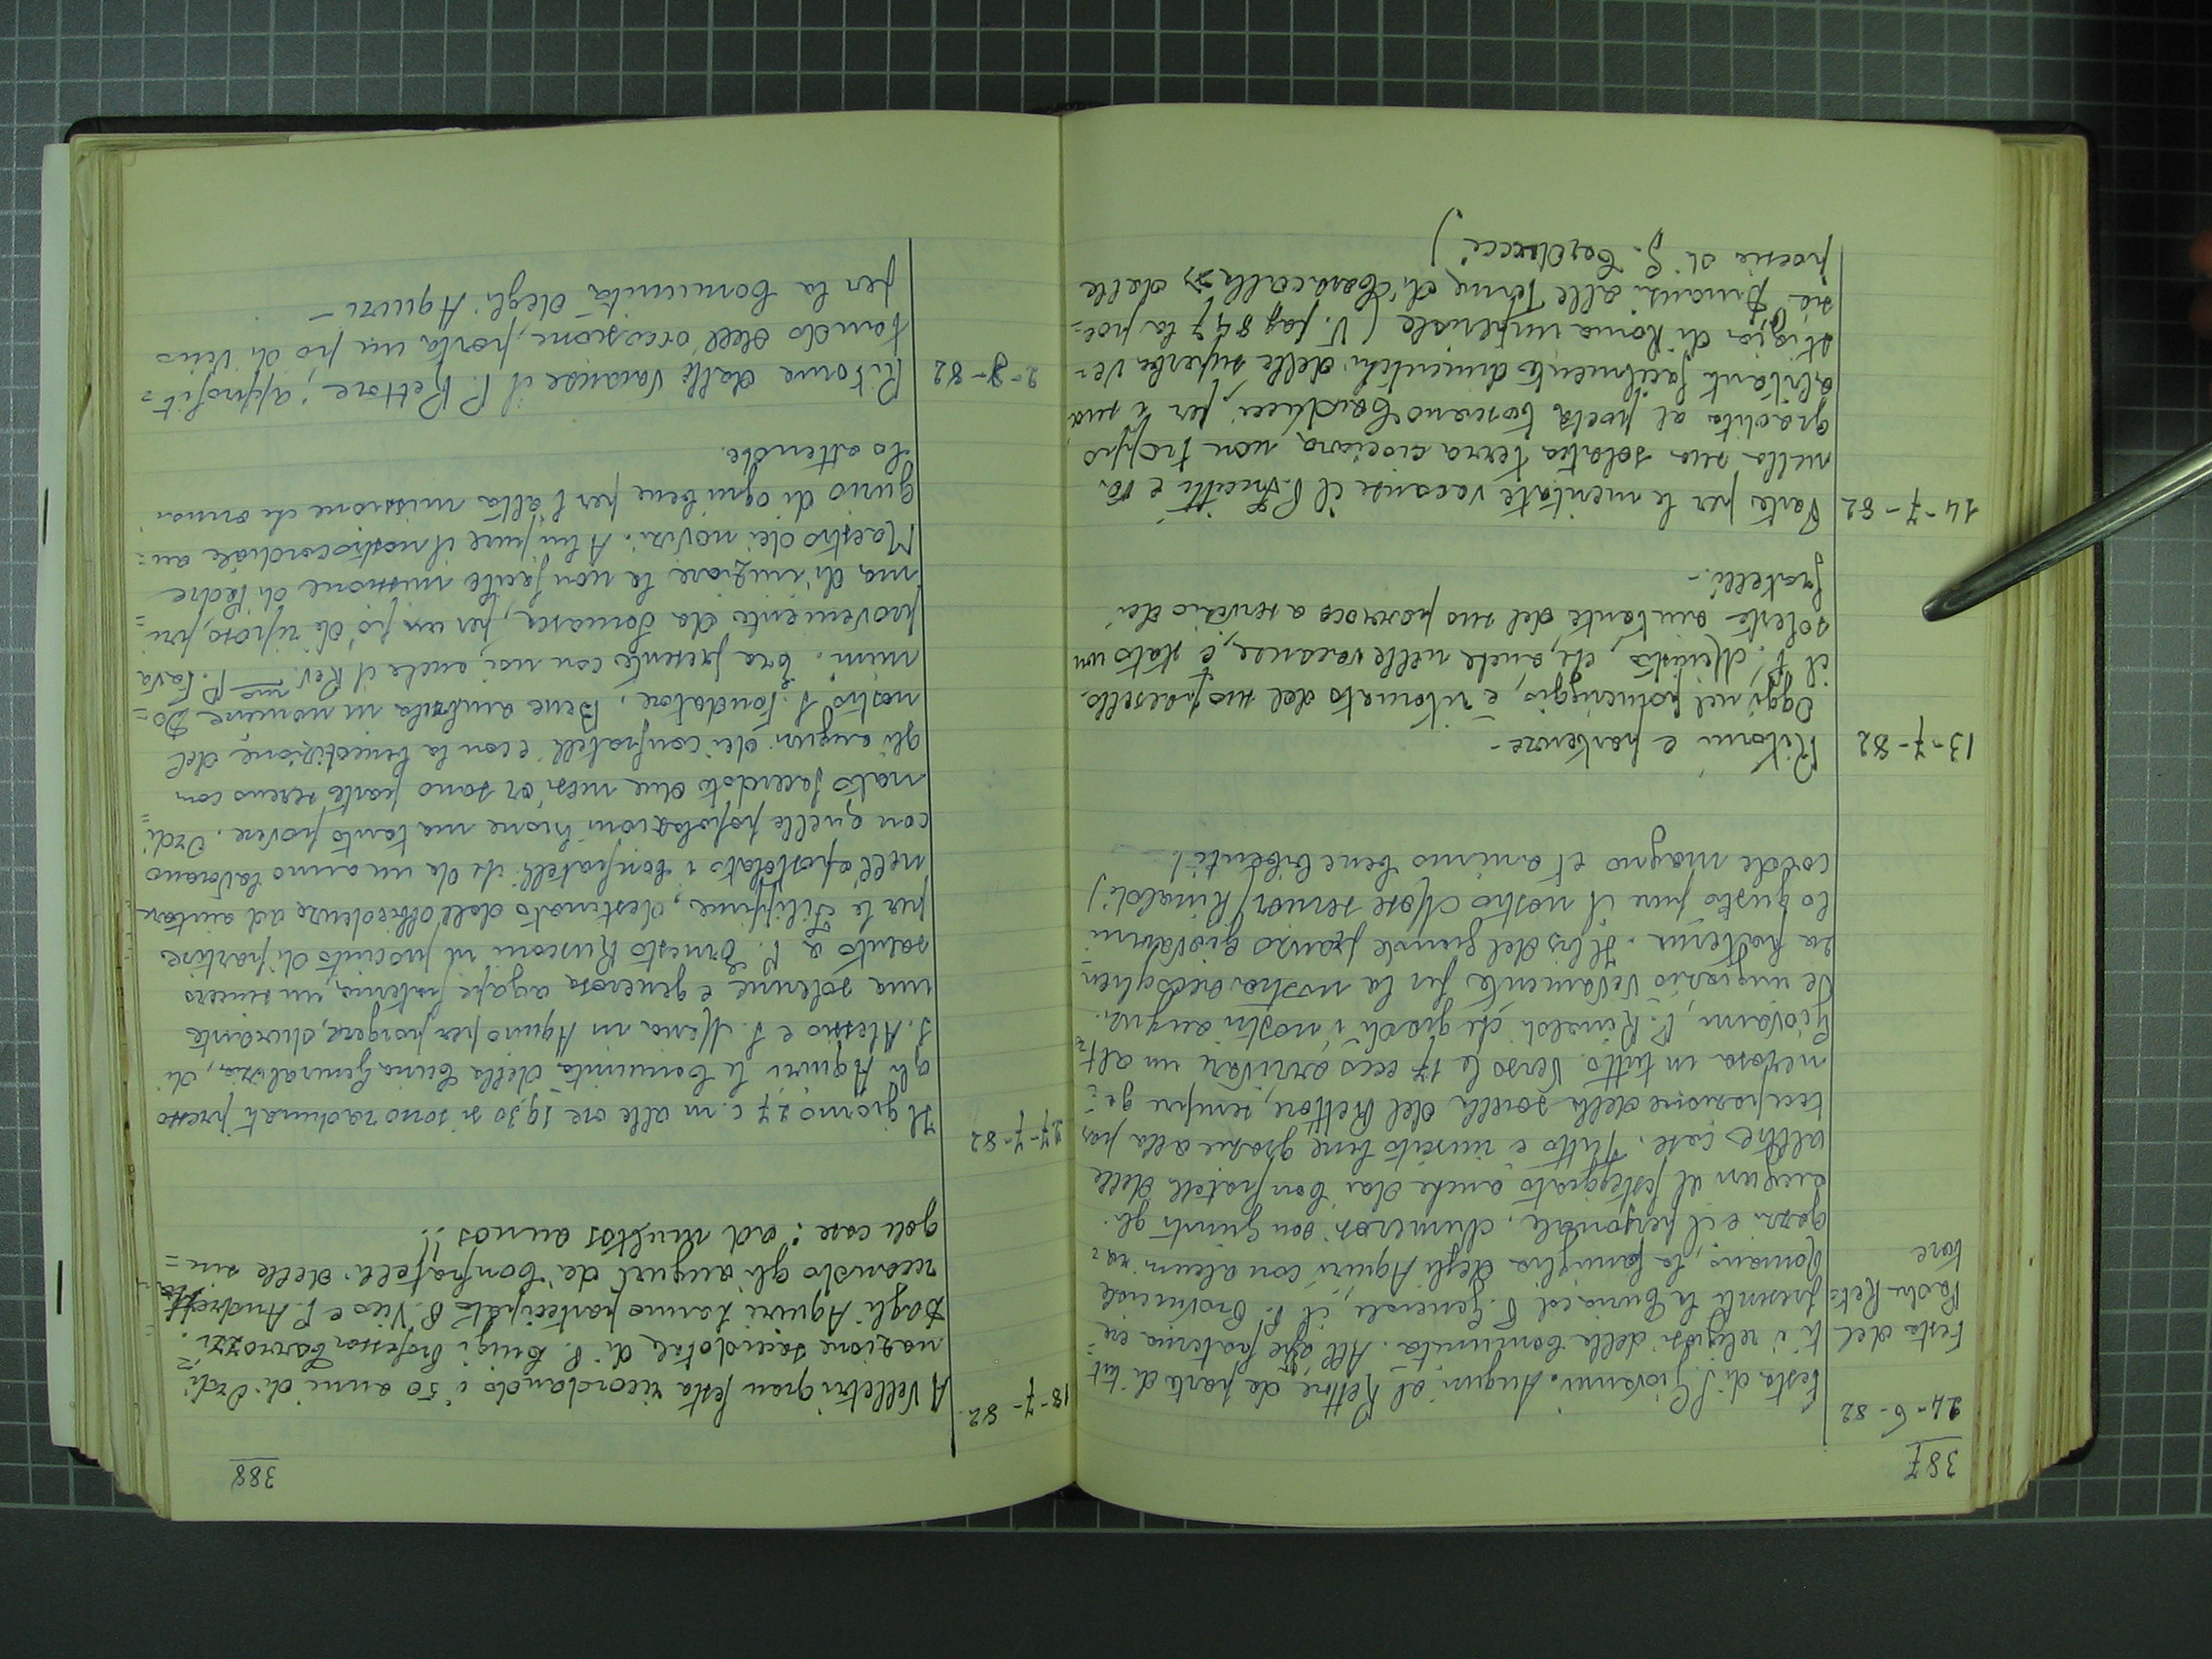 387
24-6-82
Festa del
Padre Ret=
tore
Festa di S. Giovanni. Auguri al Rettore da parte di tut
ti i religiosi della Comunità. All'agape fraterna era
presente la Curia col P. Generale, il P. Provinciale
Romano, la famiglia degli Aquiri con alcuni ra=
gazzi e il personale. Numerosi son giunti gli
auguri al festeggiato anche dai Confratelli delle
altre case. Tutto è riuscito bene grazie alla par
tecipazione della sorella del Rettore, sempre ge=
nerosa in tutto. Verso le 17 ecco arrivare un altro
Giovanni, P. Rinaldi che gradì i nostri auguri.
Se ringraziò vivamente per la nostra accoglien
za fraterna. Il bis del grande pranzo giovanni
lo gustò pure il nostro Mosè senior (Rinaldi)
corde magno et animo bene bibenti!
13-7-82
Ritorni e partenze -
Oggi nel pomeriggio, è ritornato dal suo paesello
il P. Ministro, che, anche nelle vacanze, è stato un
solerte aiutante del suo parroco a servizio dei
fratelli. -
14-7-82
Parte per le meritate vacanze il P. e va
nella sua solatia terra ciociara, non troppo
gradita al poeta toscano Carducci, per i suoi
abitanti facilmente dimentichi delle superbe ve-
stigia di Roma imperiale (V. pag 847 la poe=
sia Dinanzi alle Terme di Caracalla dalle
poesie di G. Carducci)
388
18-7-82
A Velletri gran festa ricordando i 50 anni di Ordi=
nazione sacerdotale di P. Luigi Professor Carrozzi.
Dagli Aquiri hanno partecipato P. Vico e P. Andreotti
recando gli auguri dei Confratelli delle sin=
gole case: ad multos annos!!
27-7-82
Il giorno 27 c.m alle ore 19,30 si sono radunati presso
gli Aquiri le Comunità della Curia Generalizia, di
S. Alessio e S. Maria in Aquiro per porgere, durante
una solenne e generosa agape fraterna, un sincero
saluto a P. Ernesto Rusconi in procinto di partire
per le Filippine, destinato dall'obbedienza ad aiutar
nell'apostolato i Confratelli che da un anno lavorano
con quelle popolazioni buone ma tanto povere. Ordi=
nato sacerdote due mesi or sono parte sereno con
gli auguri dei confratelli e con la benedizione del
nostro S. Fondatore. Bene ambula in nomine Do=
mini. Era presente con noi anche il Rev.mo P. Fava
proveniente da Somasca, per un pò di riposo, pri=
ma di iniziare la non facile missione di Padre
Maestro dei novizi. A lui pure il nostro cordiale au=
gurio di ogni bene per l'alta missione che ormai
lo attende.
2-8-82
Ritorna dalle vacanze il P. Rettore; approfit=
tando dell'occasione, porta un pò di vino
per la Comunità degli Aquiri -